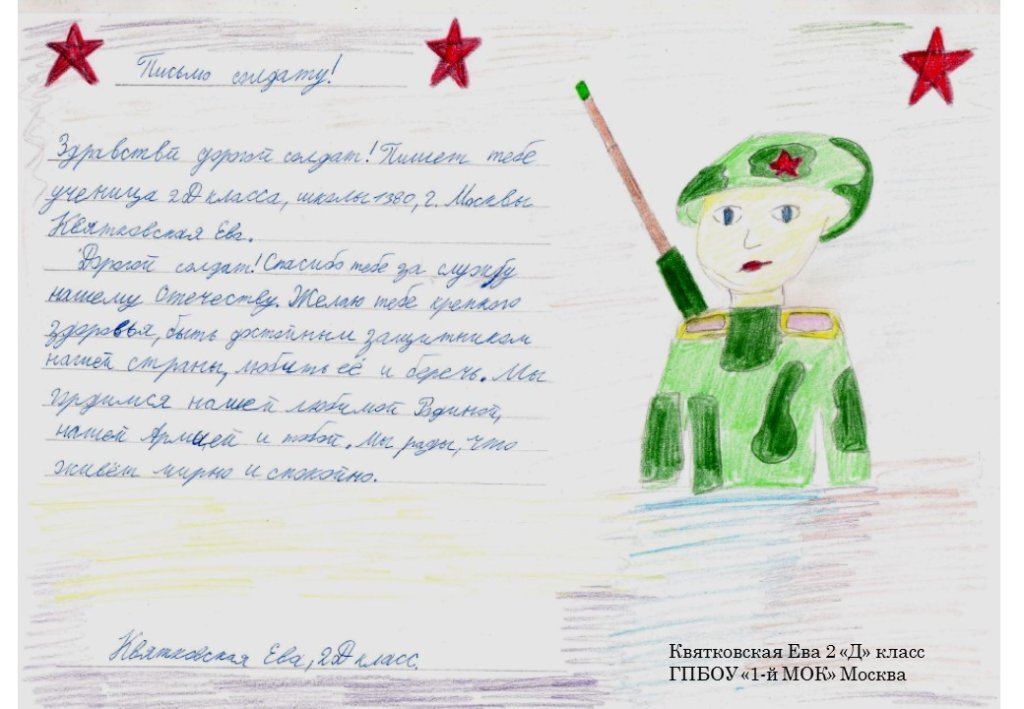 Письмо солдату!
Здравствй дорогой солдат! Пишет тебе
ученица 2Д класса, школы 1360, г. Москвы
Квятковская Ева.
Дорогой солдат! Спасибо тебе за службу
нашему Отечеству. Желаю тебе крепкого
здоровья, быть достойным защитником
нашей страны, любить её и беречь. Мы
гордимся нашей любимой Родиной,
нашей Армией и тобой. Мы рады, что
живём мирно и спокойно.
Квятковская Ева, 2Д класс.
Квятковская Ева 2 «Д» класс
ГПБОУ «1-й МОК» Москва